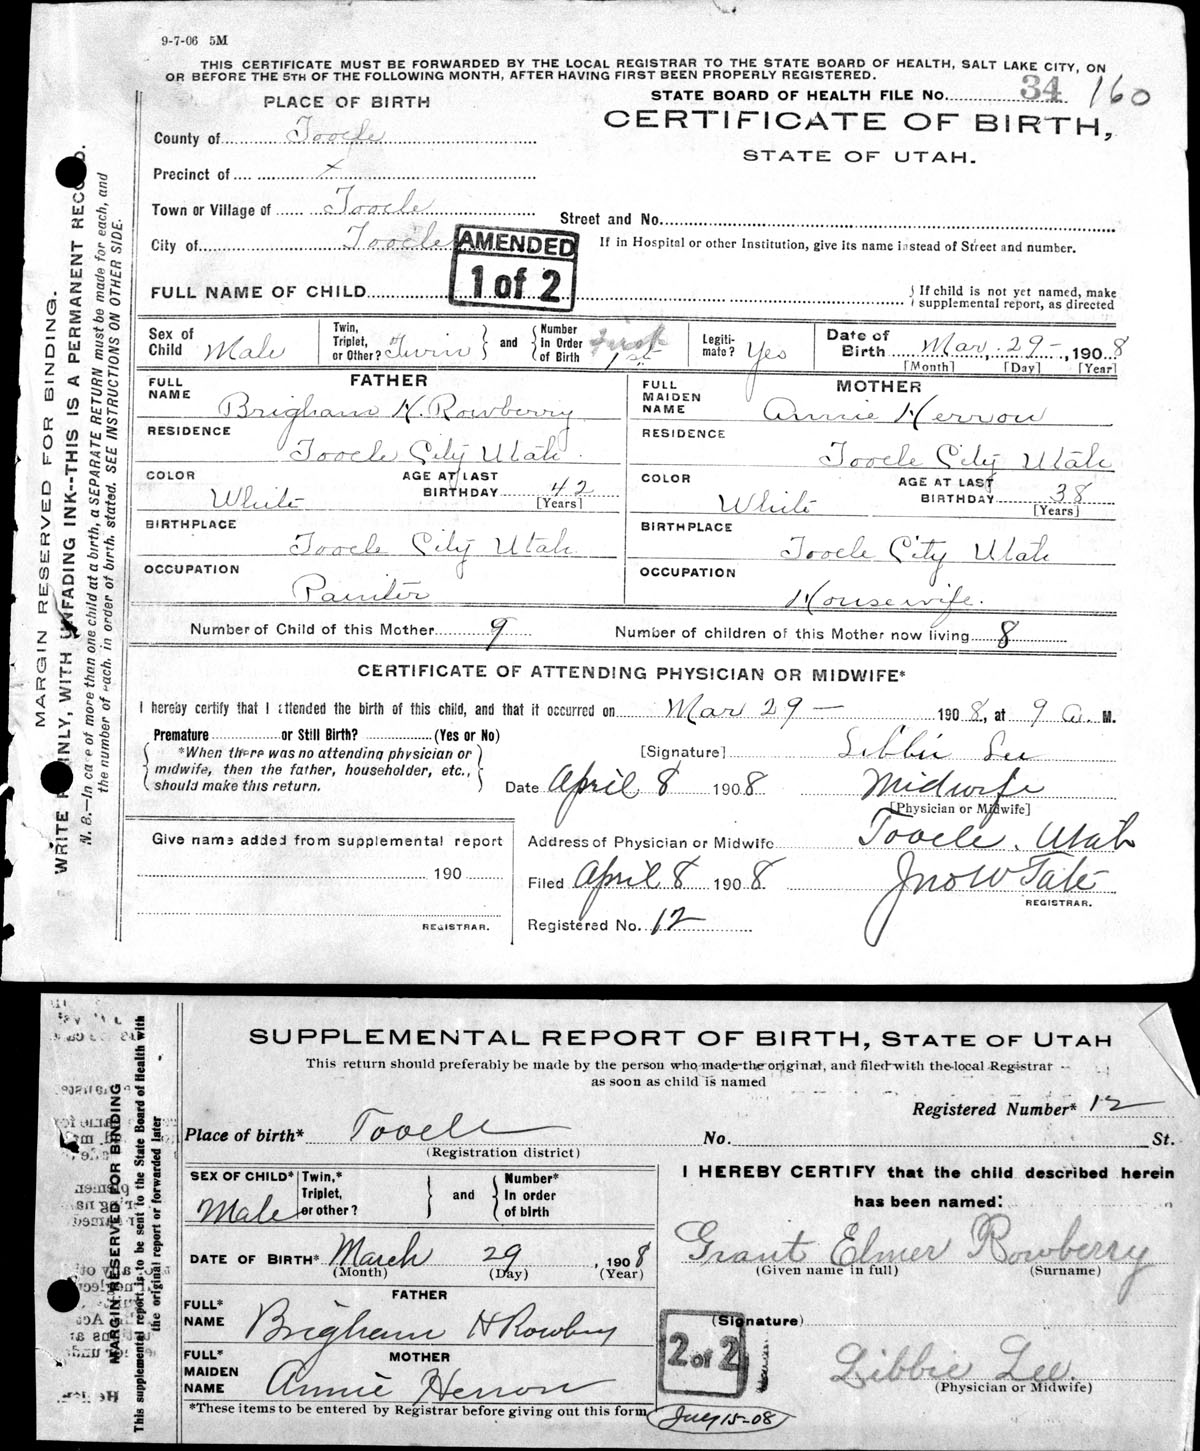 9-7-06 5M
THIS CERTIFICATE MUST BE FORWARDED BY THE LOCAL REGISTRAR TO THE STATE BOARD OF HEALTH, SALT LAKE CITY, ON
OR BEFORE THE 5TH OF THE FOLLOWING MONTH, AFTER HAVING FIRST BEEN PROPERLY REGISTERED.
PLACE OF BIRTH
STATE BOARD OF HEALTH FILE No. 34 160
CERTIFICATE OF BIRTH,
STATE OF UTAH.
County of Tooele
Precinct of x
Town or Village of Tooele
Street and No.
City of Tooele
If in Hospital or other Institution, give its name instead of Street and number.
AMENDED
1 of 2
FULL NAME OF CHILD
If child is not yet named, make
supplemental report, as directed
Sex of Child Male
Twin, Triplet, or Other? Twin
and
Number In Order of Birth First 1st
Legiti-mate? Yes
Date of Birth Mar. 29-, 1908
[Month] [Day] [Year]
FATHER
FULL NAME Brigham H. Rowberry
RESIDENCE
Tooele City Utah.
COLOR White
AGE AT LAST BIRTHDAY 42
[Years]
BIRTHPLACE
Tooele City Utah
OCCUPATION
Painter
MOTHER
FULL MAIDEN NAME Annie Herron
RESIDENCE
Tooele City Utah
COLOR White
AGE AT LAST BIRTHDAY 38
[Years]
BIRTHPLACE
Tooele City Utah
OCCUPATION
Housewife.
Number of Child of this Mother 9
Number of children of this Mother now living 8
CERTIFICATE OF ATTENDING PHYSICIAN OR MIDWIFE*
I hereby certify that I attended the birth of this child, and that it occurred on Mar 29 - 1908, at 9 a. M.
Premature or Still Birth? (Yes or No)
*When there was no attending physician or
midwife, then the father, householder, etc.,
should make this return.
[Signature] Libbie Lee
Date April 8 1908 Midwife
[Physician or Midwife]
Give name added from supplemental report
190
REGISTRAR.
Address of Physician or Midwife Tooele, Utah
Filed April 8 1908 Jno W Tate
REGISTRAR.
Registered No. 12
MARGIN RESERVED FOR BINDING.
WRITE PLAINLY, WITH UNFADING INK--THIS IS A PERMANENT RECORD.
N. B.—In case of more than one child at a birth, a SEPARATE RETURN must be made for each, and
the number of each, in order of birth, stated. SEE INSTRUCTIONS ON OTHER SIDE.
SUPPLEMENTAL REPORT OF BIRTH, STATE OF UTAH
This return should preferably be made by the person who made the original, and filed with the local Registrar
as soon as child is named
Registered Number* 12
Place of birth* Tooele
No. St.
(Registration district)
SEX OF CHILD* Male
Twin,* Triplet, or other?
and
Number* In order of birth
I HEREBY CERTIFY that the child described herein
has been named:
Grant Elmer Rowberry
(Given name in full) (Surname)
DATE OF BIRTH* March 29, 1908
(Month) (Day) (Year)
FATHER
FULL* NAME Brigham H Rowbery
MOTHER
FULL* MAIDEN NAME Annie Herron
(Signature)
2 of 2
Libbie Lee.
(Physician or Midwife)
*These items to be entered by Registrar before giving out this form
July 15-08
MARGIN RESERVED FOR BINDING
This supplemental report is to be sent to the State Board of Health with
the original report or forwarded later